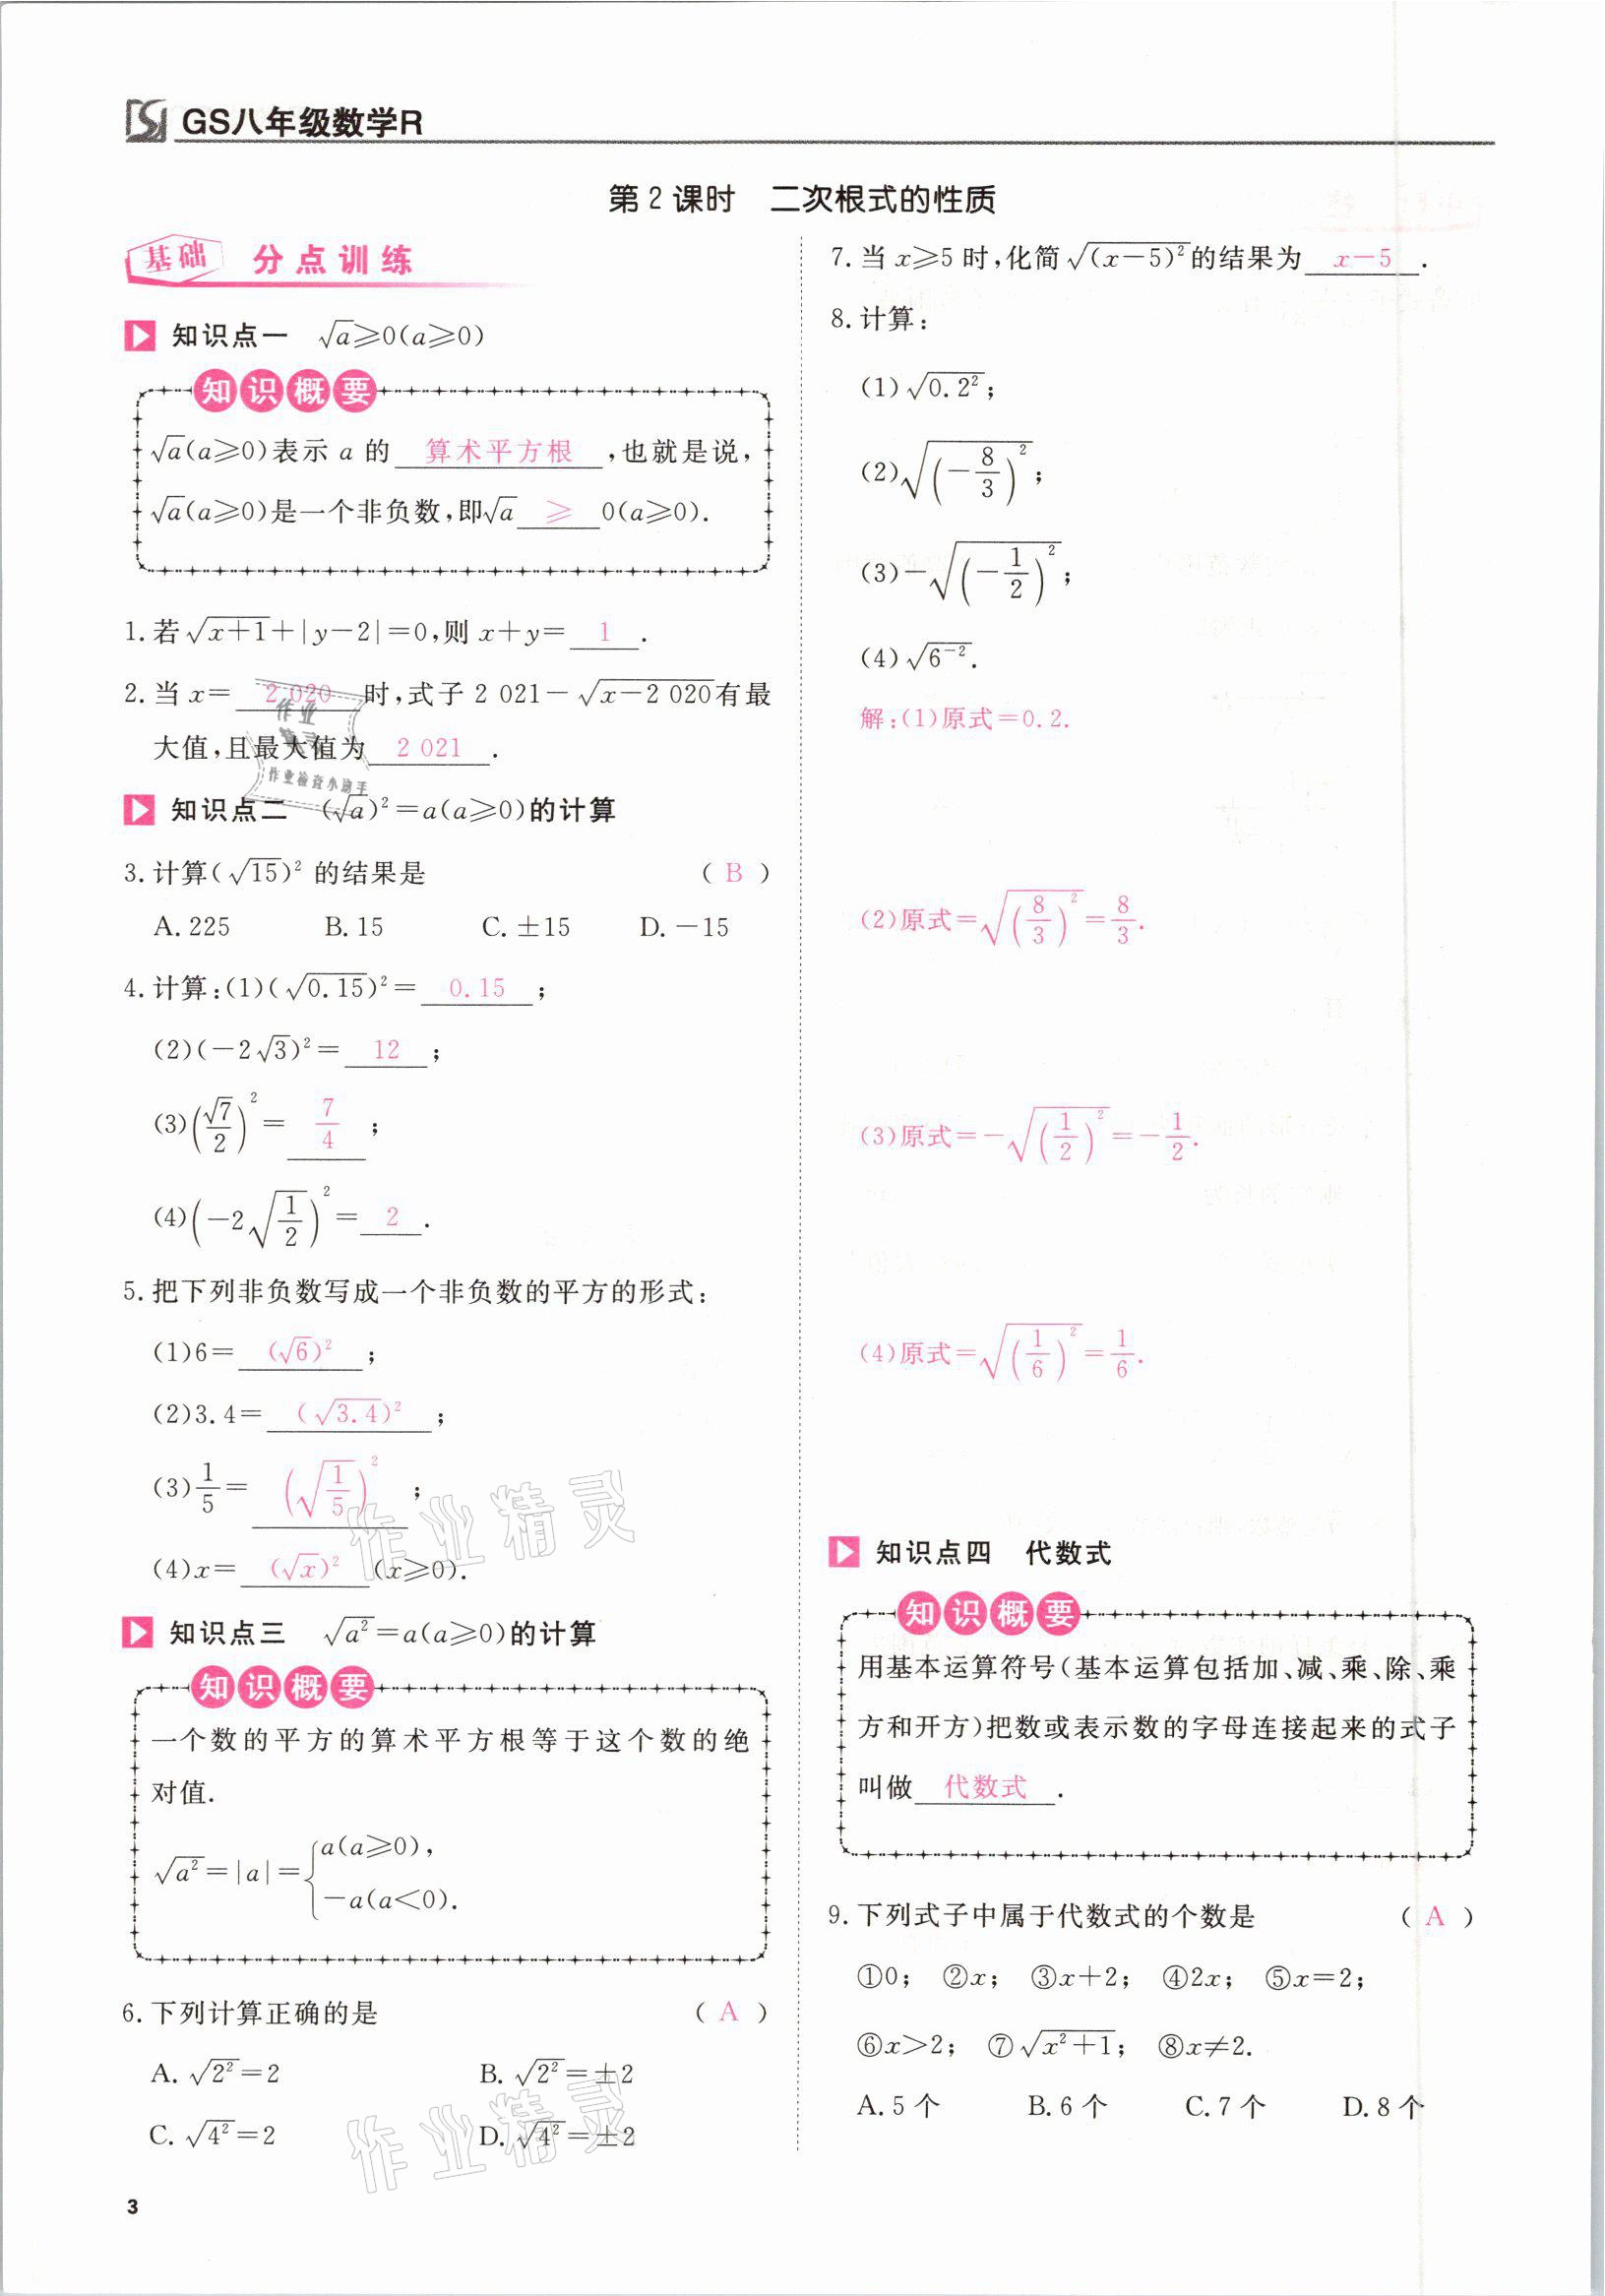 GS八年级数学R
第2课时 二次根式的性质
基础 分点训练
知识点一 √a≥0(a≥0)
知识概要
√a(a≥0)表示 a 的 算术平方根 ,也就是说,
√a(a≥0)是一个非负数,即√a ≥ 0(a≥0).
1.若√(x+1)+|y-2|=0,则 x+y= 1 .
2.当 x= 2 020 时,式子 2 021-√(x-2 020)有最
大值,且最大值为 2 021 .
作业
精灵
作业检查小助手
知识点二 (√a)²=a(a≥0)的计算
3.计算(√15)² 的结果是 ( B )
A. 225 B. 15 C. ±15 D. -15
4.计算:(1)(√0.15)²= 0.15 ;
(2)(-2√3)²= 12 ;
(3)(√7/2)²= 7/4 ;
(4)(-2√(1/2))²= 2 .
5.把下列非负数写成一个非负数的平方的形式:
(1)6= (√6)² ;
(2)3.4= (√3.4)² ;
(3)1/5= (√(1/5))² ;
(4)x= (√x)² (x≥0).
作业精灵
知识点三 √a²=a(a≥0)的计算
知识概要
一个数的平方的算术平方根等于这个数的绝
对值.
√a²=|a|={a(a≥0),
-a(a<0).
6.下列计算正确的是 ( A )
A. √2²=2 B. √2²=±2
C. √4²=2 D. √4²=±2
作业精灵
3
7.当 x≥5 时,化简√(x-5)²的结果为 x-5 .
8.计算:
(1)√0.2²;
(2)√(-8/3)²;
(3)-√(-1/2)²;
(4)√6⁻².
解:(1)原式=0.2.
(2)原式=√(8/3)²=8/3.
(3)原式=-√(1/2)²=-1/2.
(4)原式=√(1/6)²=1/6.
知识点四 代数式
知识概要
用基本运算符号(基本运算包括加、减、乘、除、乘
方和开方)把数或表示数的字母连接起来的式子
叫做 代数式 .
9.下列式子中属于代数式的个数是 ( A )
①0; ②x; ③x+2; ④2x; ⑤x=2;
⑥x>2; ⑦√(x²+1); ⑧x≠2.
A. 5 个 B. 6 个 C. 7 个 D. 8 个